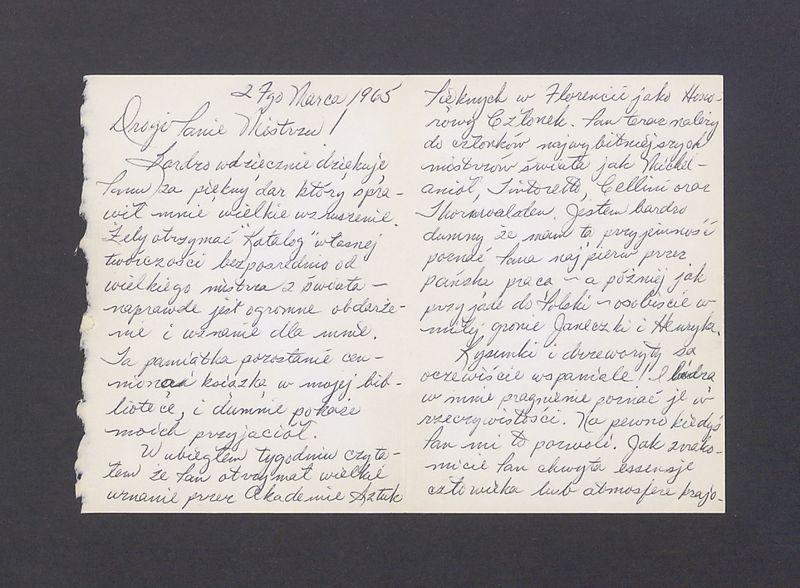 27go Marca 1965
Drogi Panie Mistrzu!
Bardzo wdziecznie dziękuje
Panu za piękny dar który spra-
wił mnie wielkie wzruszenie.
Żeby otrzymać "Katalog" własnej
twórczości bezpośrednio od
wielkiego mistrza z świata –
naprawde jest ogromne obdarze-
nie i uznanie dla mnie.
Ta pamiątka pozostanie cen-
niona książka w mojej bib-
liotece, i dumnie pokaże
moich przyjaciół.
W ubiegłem tygodniu czyta-
łem że Pan otrzymał wielkie
uznanie przez Akademie Sztuk
Pięknych w Florencii jako Hono-
rowy Członek. Pan teraz należy
do członków najwybitniejszych
mistrzów świata jak Michel-
anioł, Tintoretto, Cellini oraz
Thorwalsten. Jestem bardzo
dumny że mam tą przyjemność
poznać Pana najpierw przez
pańska praca – a później jak
przyjade do Polski – osobiście w
miłej gronie Janeczki i Henryka.
Rysunki i drzeworyty są
oczewiście wspaniałe! I budza
w mnie pragnienie poznać je w
rzeczywistości. Na pewno kiedyś
Pan mi to pozwoli. Jak znako-
micie Pan chwyta essensje
człowieka lub atmosfere krajo-